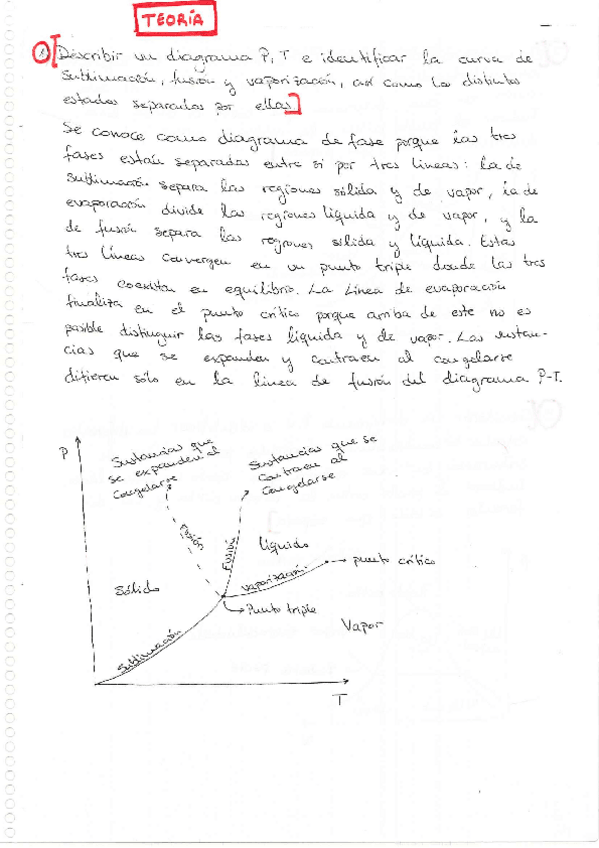 TEORÍA
1 [Describir un diagrama P,T e identificar la curva de
sublimación, fusión y vaporización, así como los distintos
estados separados por ellas]
Se conoce como diagrama de fase porque las tres
fases están separadas entre sí por tres líneas: la de
sublimación separa las regiones sólida y de vapor, la de
evaporación divide las regiones líquida y de vapor, y la
de fusión separa las regiones sólida y líquida. Estas
tres líneas convergen en un punto triple donde las tres
fases coexisten en equilibrio. La línea de evaporación
finaliza en el punto crítico porque arriba de este no es
posible distinguir las fases líquida y de vapor. Las sustan-
cias que se expanden y contraen al congelarse
difieren sólo en la línea de fusión del diagrama P-T.
P
Sustancias que
se expanden al
congelarse
Sustancias que se
contraen al
congelarse
Fusión
Fusión
Líquido
Sólido
vaporización
punto crítico
Punto triple
Vapor
Sublimación
T